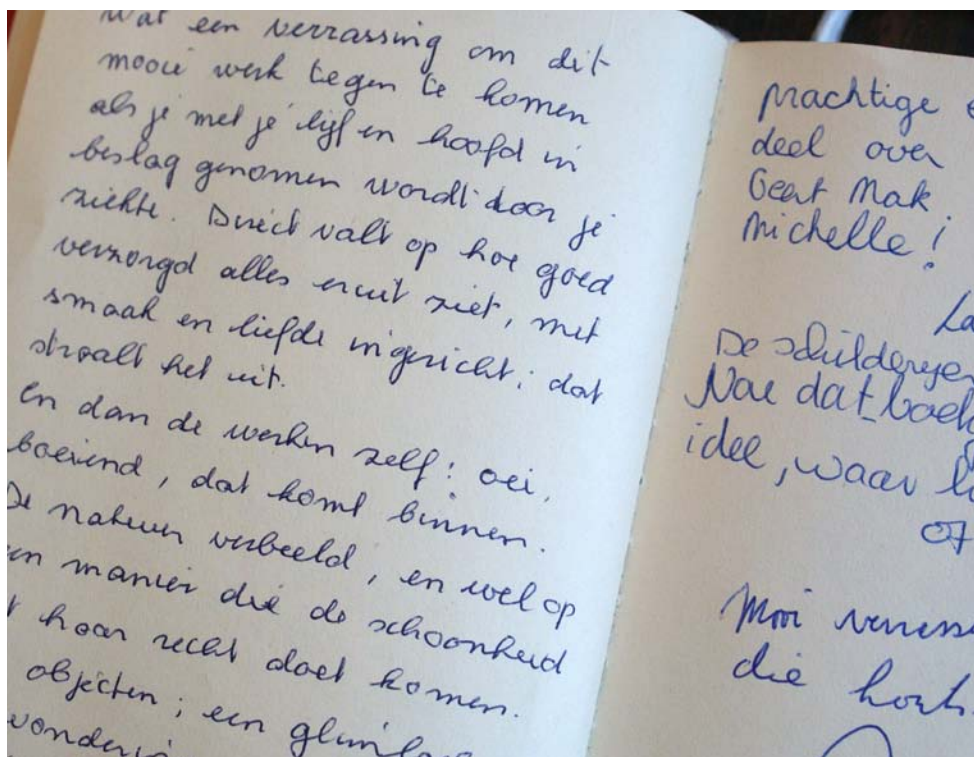 Wat een verrassing om dit
mooie werk tegen te komen
als je met je lijf en hoofd in
beslag genomen wordt door je
ziekte. Direct valt op hoe goed
verzorgd alles eruit ziet, met
smaak en liefde ingericht; dat
straalt het uit.
En dan de werken zelf: oei,
boeiend, dat komt binnen.
De natuur verbeeld, en wel op
manier die de schoonheid
haar recht doet komen.
objecten; een
prachtige
deel over
Geert Mak.
Michelle!
De schilderijen
dat boek
idee, waar
07
Mooi
die